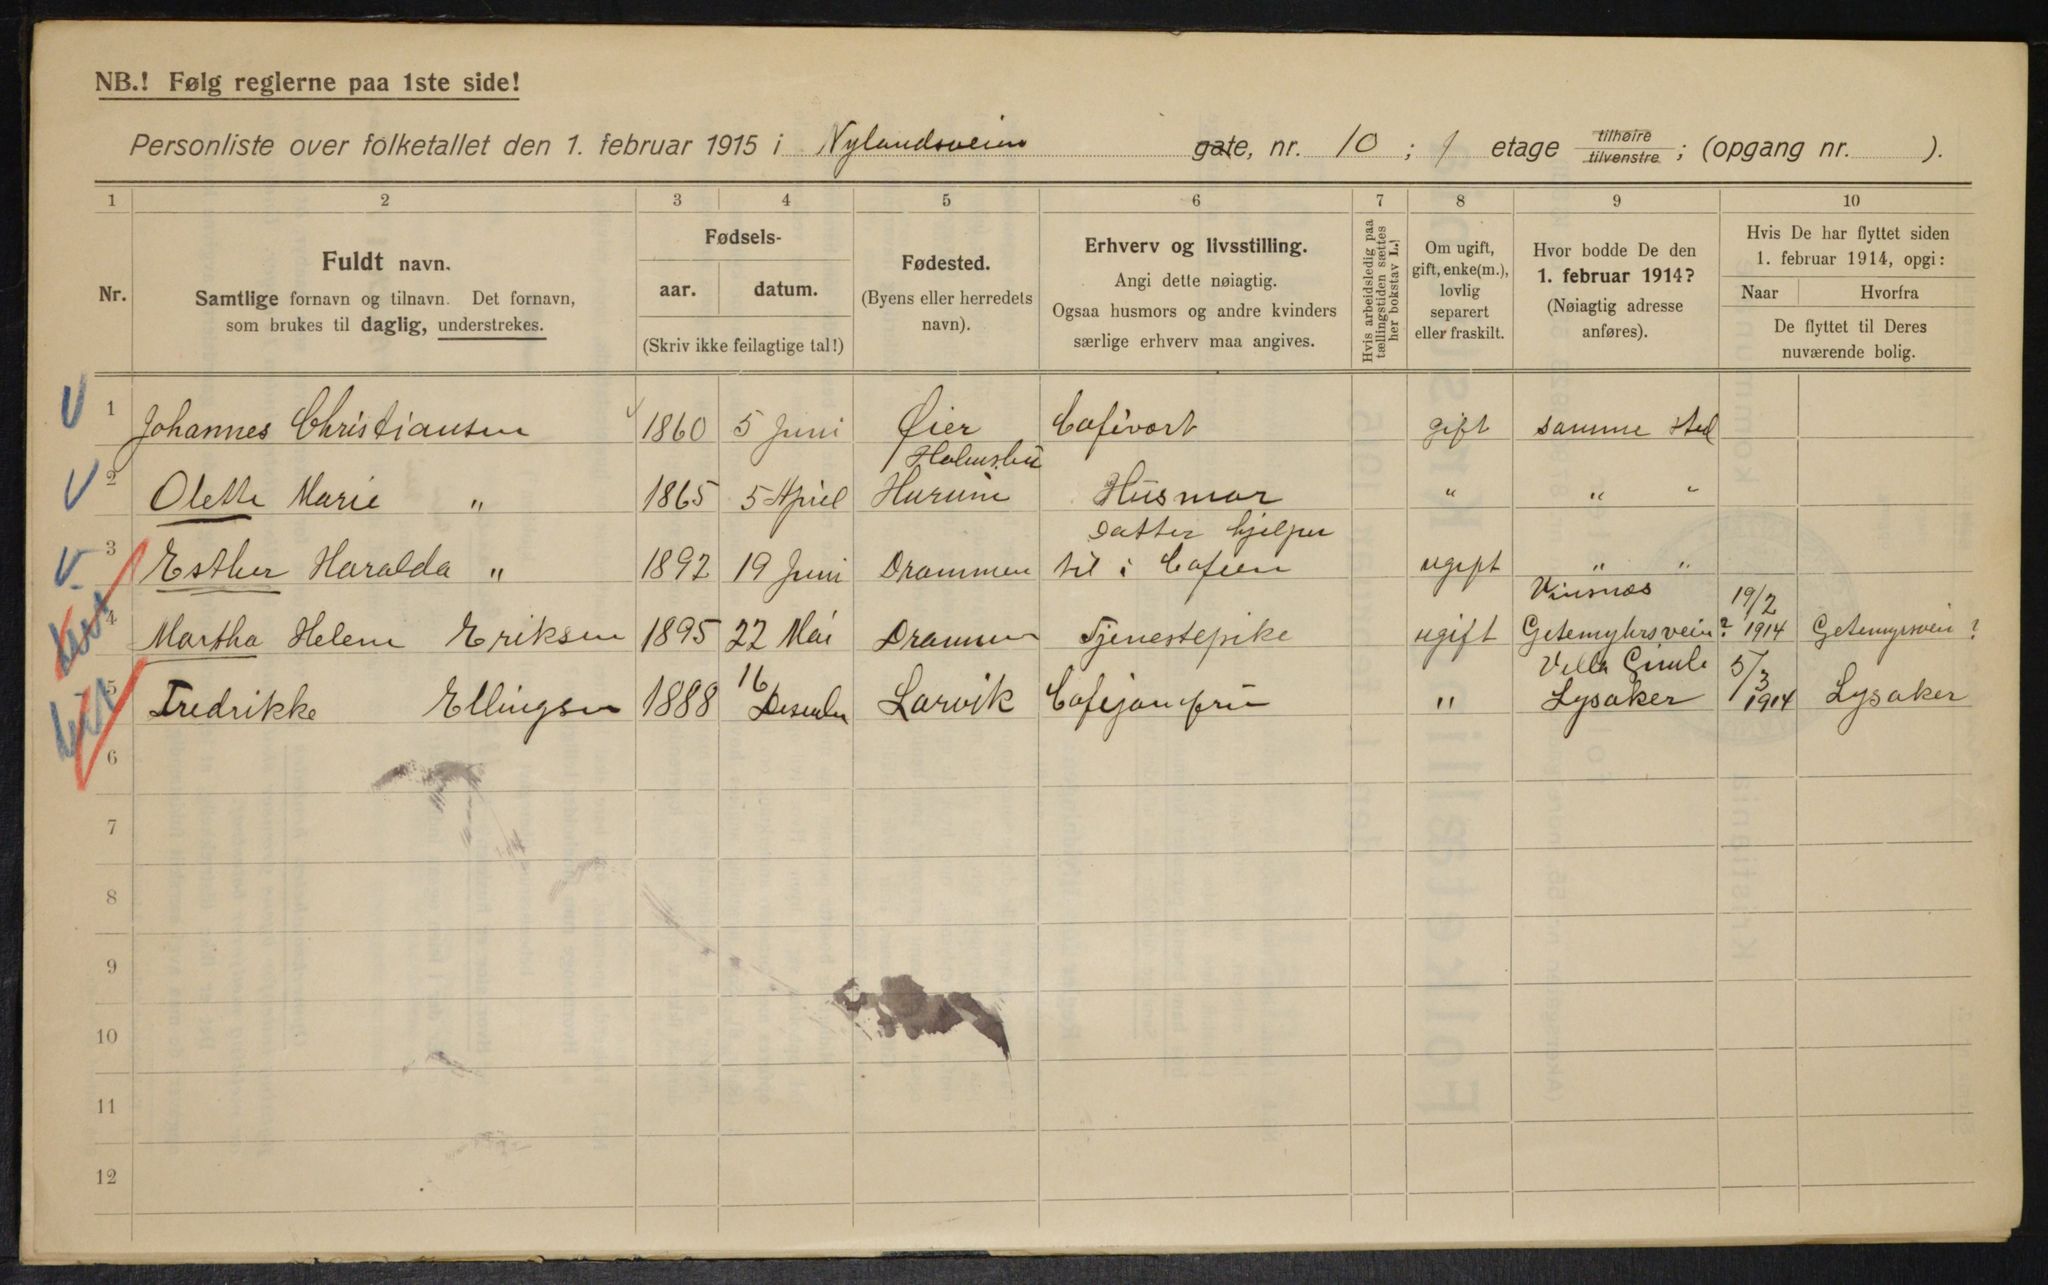 NB.! Følg reglerne paa 1ste side!
Personliste over folketallet den 1. februar 1915 i Nylandsveien gate, nr. 10 ; 1 etage tilhøire tilvenstre ; (opgang nr. ).
1 2 3 4 5 6 7 8 9 10
Nr.
Fuldt navn.
Samtlige fornavn og tilnavn. Det fornavn,
som brukes til daglig, understrekes.
Fødsels-
aar. datum.
(Skriv ikke feilagtige tal!)
Fødested.
(Byens eller herredets
navn).
Erhverv og livsstilling.
Angi dette nøiagtig.
Ogsaa husmors og andre kvinders
særlige erhverv maa angives.
Hvis arbeidsledig paa
tællingstiden sættes
her bokstav L.!
Om ugift,
gift, enke(m.),
lovlig
separert
eller fraskilt.
Hvor bodde De den
1. februar 1914?
(Nøiagtig adresse
anføres).
Hvis De har flyttet siden
1. februar 1914, opgi:
Naar Hvorfra
De flyttet til Deres
nuværende bolig.
1 Johannes Christiansen 1860 5 Juni Øier Cafévært gift samme sted
Holmsbu
2 Olette Marie " 1865 5 April Hurum Husmor " " "
Datter hjelper
3 Esther Haralda " 1892 19 Juni Drammen til i Cafeen ugift " "
Vinsnæs 19/2
4 Martha Helene Eriksen 1895 22 Mai Drammen Tjenestepike ugift Getemyhrsvein? 1914 Getemyrsvein?
Villa Gimle 5/3
16
5 Fredrikke Ellingsen 1888 Desember Larvik Cafejomfru " Lysaker 1914 Lysaker
6
7
8
9
10
11
12